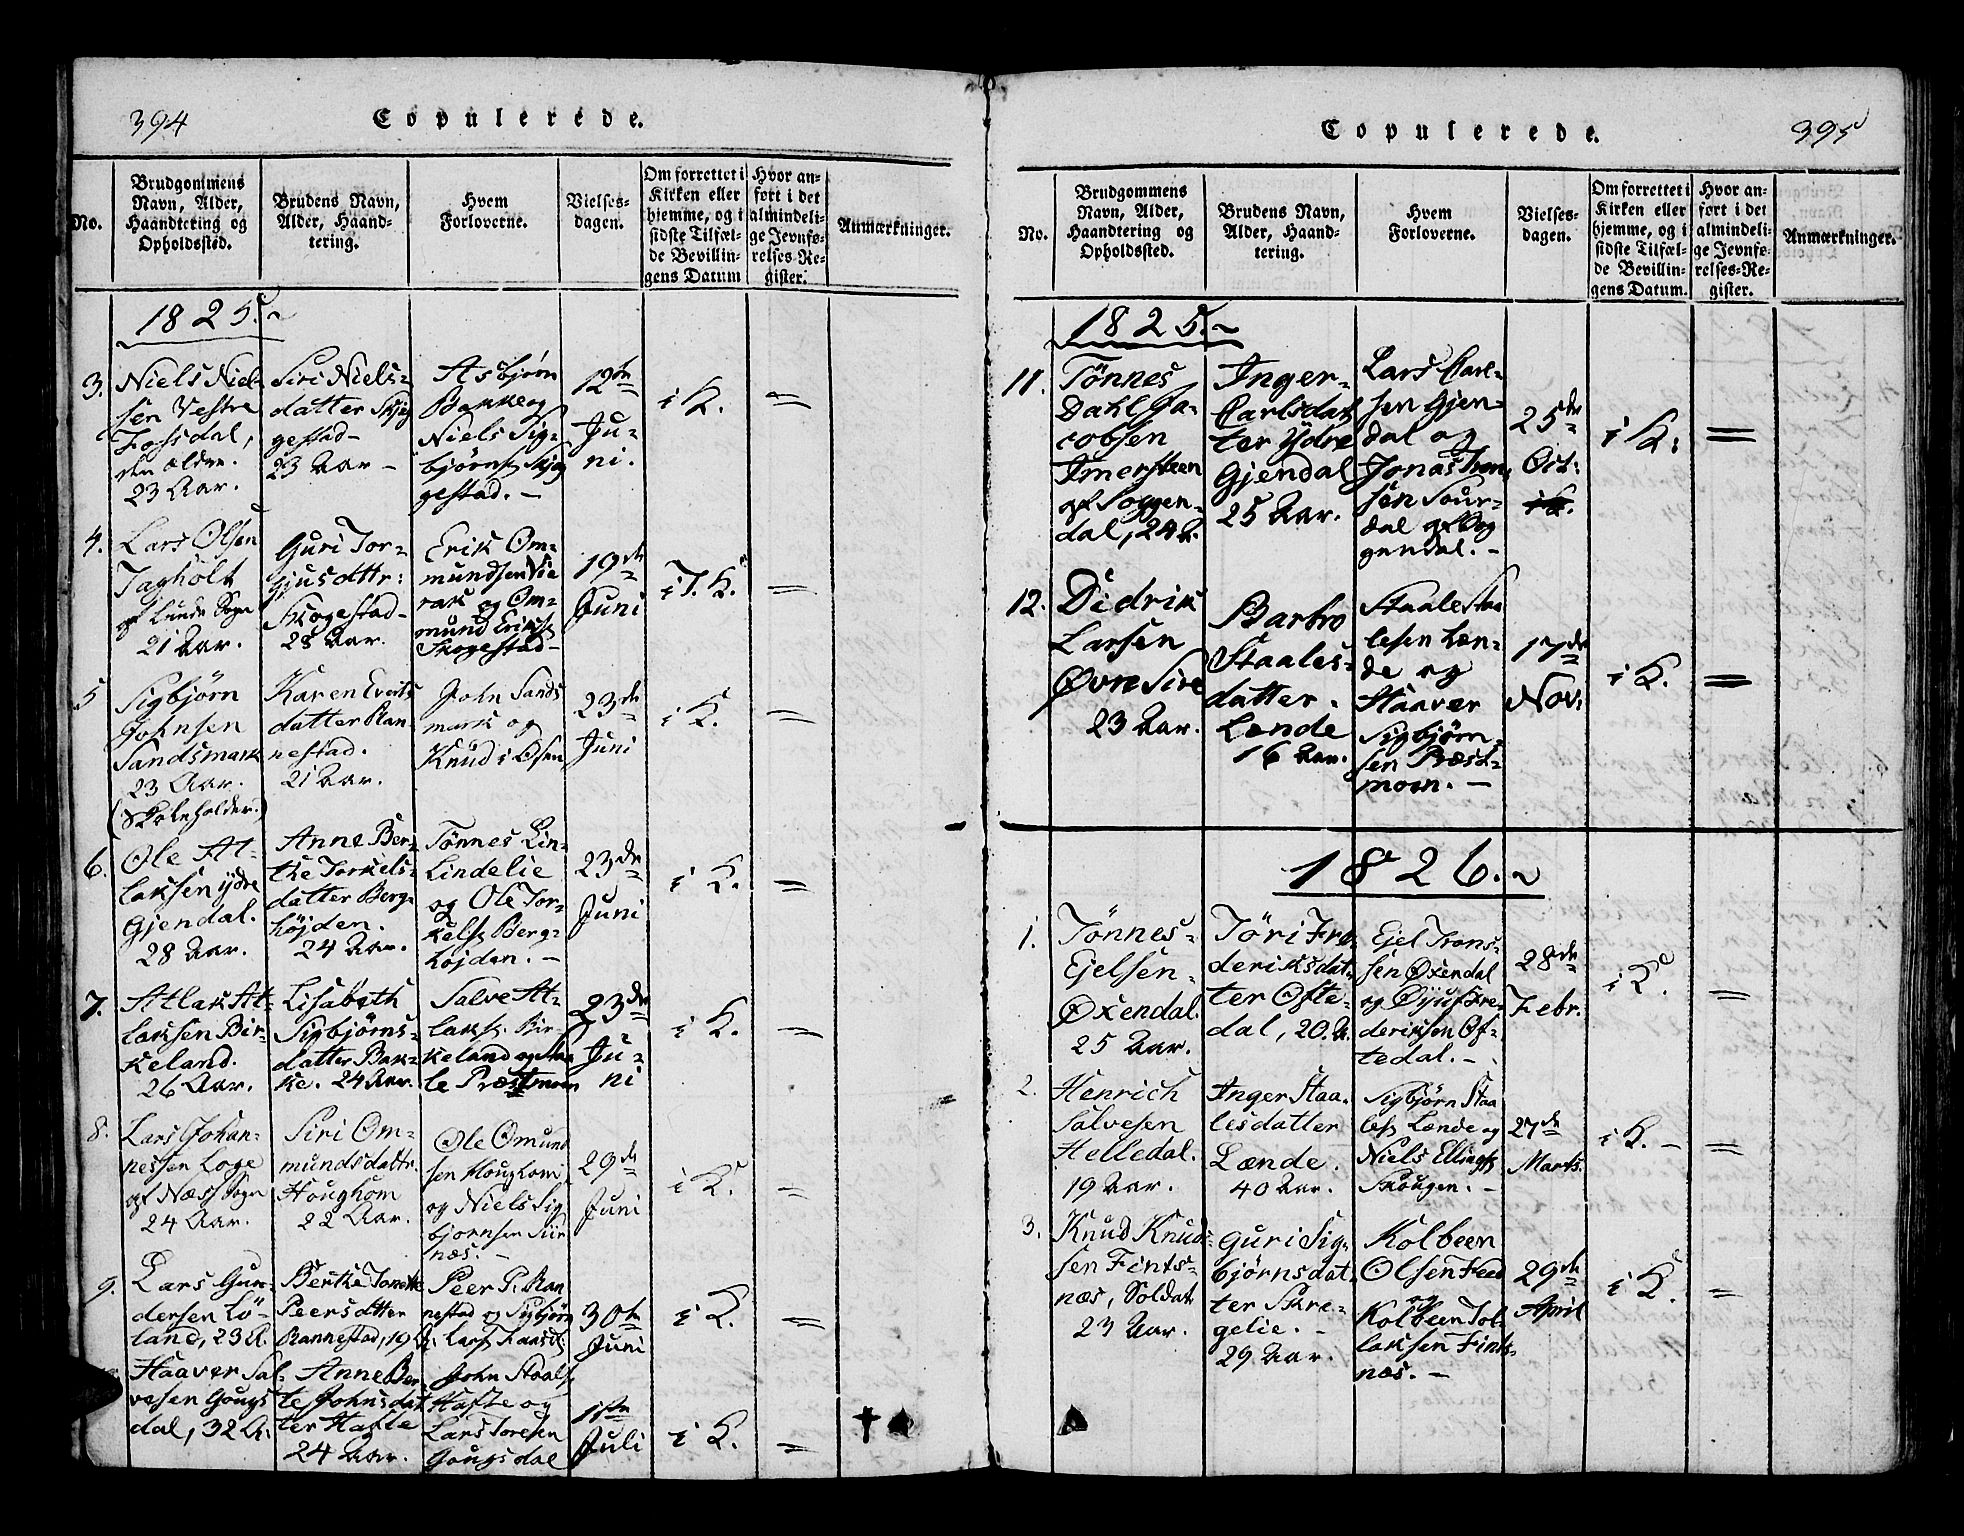 394
Copulerede.
No.
Brudgommens
Navn, Alder,
Haandtering og
Opholdssted.
Brudens Navn,
Alder, Haand-
tering.
Hvem
Forloverne.
Vielses-
dagen.
Om forrettet i
Kirken eller
hjemme, og i
sidste Tilfæl-
de Bevillin-
gens Datum
Hvor an-
ført i det
almindeli-
ge Jevnfø-
relses-Re-
gister.
Anmærkninger.
1825.
3.
Niels Niel-
sen Vestre
Fossdal,
den ældre.
23 Aar.
Siri Niels-
datter Skjeg
gestad-
23 Aar -
Asbjørn
Bakke og
Niels Sig-
bjørns. Skjeg
gestad. -
12te
Ju-
ni.
i K.
=
4.
Lars Olsen
Tagholt
af Lunde Sogn
21 Aar.
Guri Tor-
gjusdttr:
Skogestad-
28 Aar.
Erik Om-
mundsen Vie
rak og Om-
mund Eriks.
Skogestad-
19de
Juni
i T. K.
=
5
Sigbjørn
Johnsen
Sandsmark
23 Aar.
(Skoleholder.)
Karen Everts
datter Ran-
nestad.
21 Aar.
John Sands
mark og
Knud i Osen
23de
Juni
i K.
=
6.
Ole At-
laksen ydre
Gjendal.
28 Aar.
Anne Ber-
the Torkels-
datter Berg-
højden.
24 Aar.
Tønnes Lin-
Lindelie
og Ole Tor-
kels. Berg-
højden. -
23de
Juni
i K.
=
7.
Atlak At-
laksen Bir-
keland.
26 Aar.
Lisabeth
Sigbjørns-
datter Bak-
ke. 24 Aar.
Salve At-
laks. Bir-
keland og Staa
le Præstmoen
23de
Ju-
ni
i K.
=
8.
Lars Johan-
nessen Loge
af Næs Sogn
24 Aar.
Siri Om-
mundsdattr.
Houghom
22 Aar.
Ole Omund
sen Houghom
og Niels Sig
bjørnsen Siir
næs. -
29de
Juni
i K.
=
9.
Lars Gun-
dersen Lö-
land, 23 A.
Berthe Tonette
Peersdtter
Rannestad, 19 A.
Peer P. Ran
nestad og Sigbjørn
Lars. Haasel.
30te
Juni
i K.
=
Haaver Sal-
vesen Gougs
dal, 32 A.
Anne Ber-
te Johnsdat
ter Hafte
24 Aar.
John Staals.
Hafte og
Lars Toresen
Gougsdal
1ste
Juli
i K.
=
†
395
Copulerede.
No.
Brudgommens
Navn, Alder,
Haandtering og
Opholdssted.
Brudens Navn,
Alder, Haand-
tering.
Hvem
Forloverne.
Vielses-
dagen.
Om forrettet i
Kirken eller
hjemme, og i
sidste Tilfæl-
de Bevillin-
gens Datum.
Hvor an-
ført i det
almindeli-
ge Jevnfø-
relses-Re-
gister.
Anmærkninger.
1825.
11.
Tönnes
Dahl Ja-
cobsen
Imersteen
af Soggen-
dal, 24 A.
Inger
Carlsdat
ter Ydre
Gjendal
25 Aar.
Lars Carl-
sen Gjen-
dal og
Jonas Tron
sen Sour-
dal af Sog
gendal. -
25de
Oct:
i K.
=
12.
Didrik
Larsen
Øvre Sire
23 Aar.
Barbro
Staales-
datter.
Lænde
16 Aar.
Staale Staa
lesen Læn-
de og
Haaver
Sigbjørn-
sen Præst-
moen. -
17de
Nov.
i K.
=
1826.
1.
Tönnes
Ejelsen
Øxendal.
25 Aar.
Töri Fre
deriksdat-
ter Ofte-
dal, 20. A.
Ejel Trons-
sen Øxendal
og Øjuf Fre-
deriksen Of-
tedal. -
28de
Febr.
i K.
=
2.
Henrich
Salvesen
Helledal.
19 Aar.
Inger Staa-
lesdatter
Lænde.
40 Aar.
Sigbjørn Staa
les. Lænde og
Niels Ellings.
Skougen. -
27de
Marts.
i K. -
=
3.
Knud Knud-
sen Fints-
næs, Soldat
23 Aar.
Guri Sig-
bjørnsdat-
ter Skre-
gelie. -
29 Aar.
Kolbeen
Olsen Feed
og
Kolbeen Tol
laksen Fints-
næs. -
29de
April
i K.
=